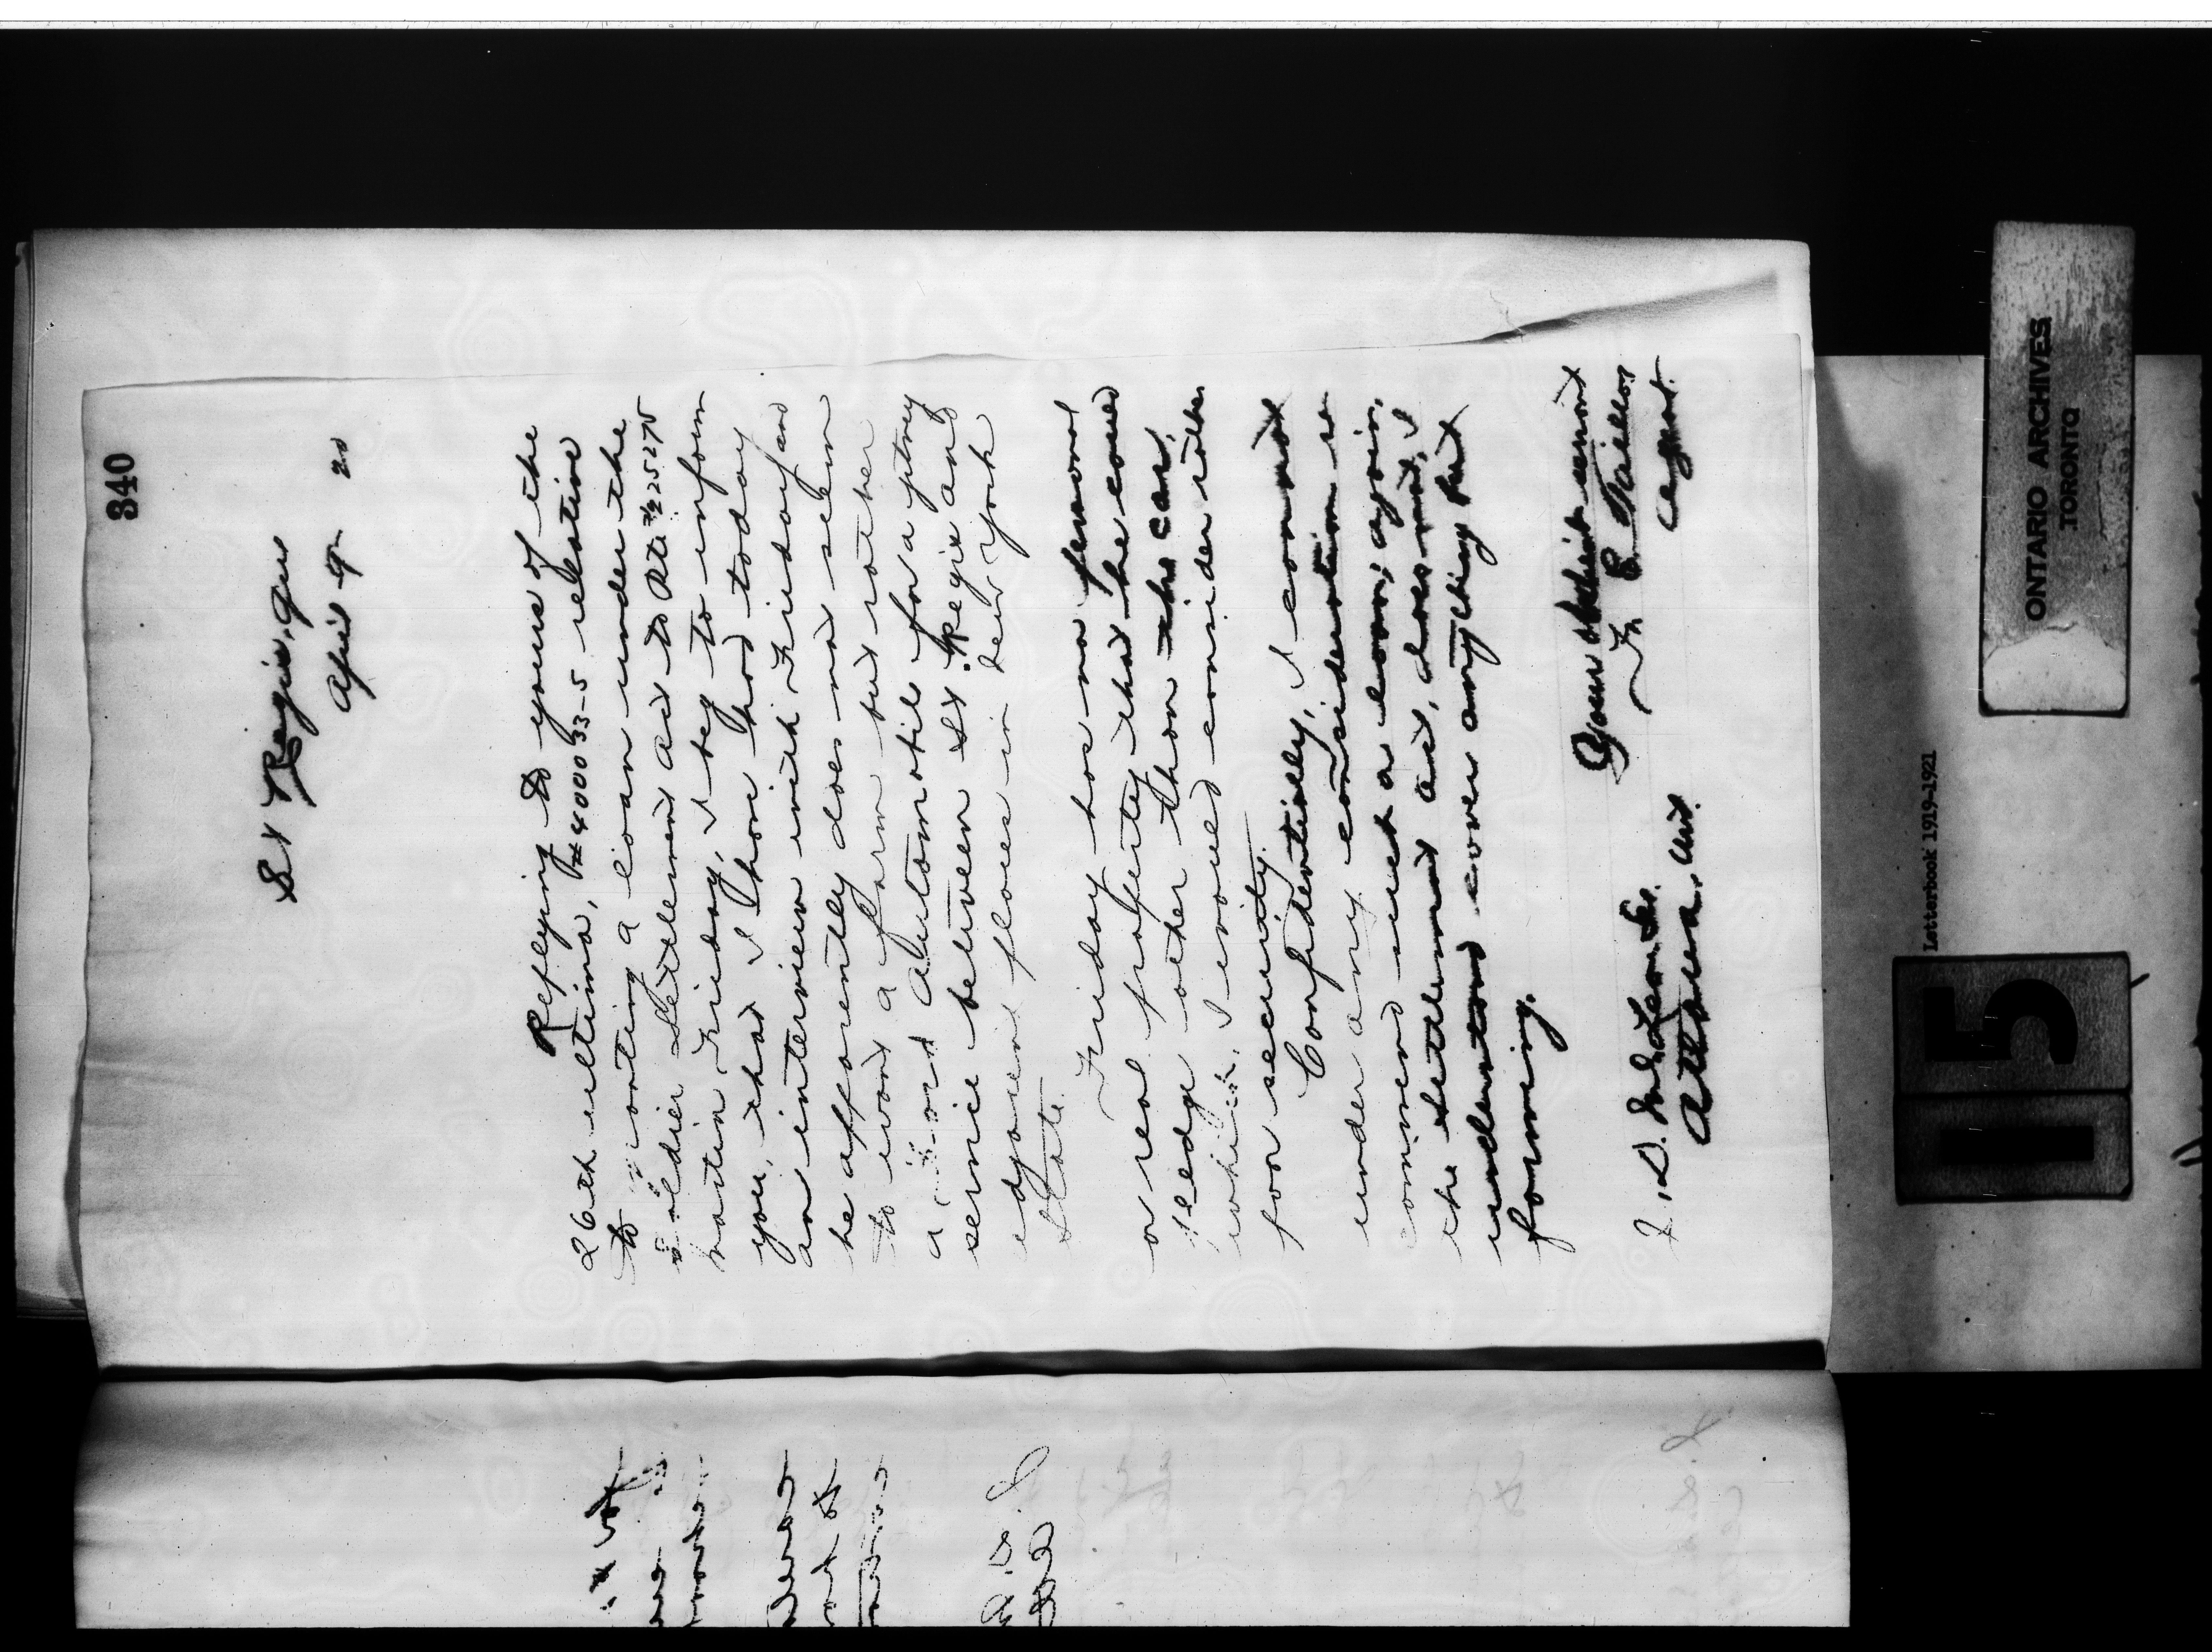 340
St Regis, Que
April 9th 20
Replying to yours of the
26th ultimo, #400033-5 relative
to granting a loan under the
Soldier Settlement Act to Pte
Martin Friday, I beg to inform
you, that I have had today
an interview with Friday and
he apparently does not seem
to want a farm but rather
a Ford Automobile for a jitney
service between St. Regis and
adjacent places in New York
State.
Friday has no personal
or real property that he could
pledge other than the car,
which I would consider rather
poor security.
Confidentially, I can not
under any consideration re
commend such a loan; again,
the settlement act, does not, I
understand cover anything but
farming.
Your obedient servant
F. E. Taillon
Agent.
J. D. McLean Esq.
Ottawa. Ont.
Letterbook 1919-1921
115
ONTARIO ARCHIVES
TORONTO